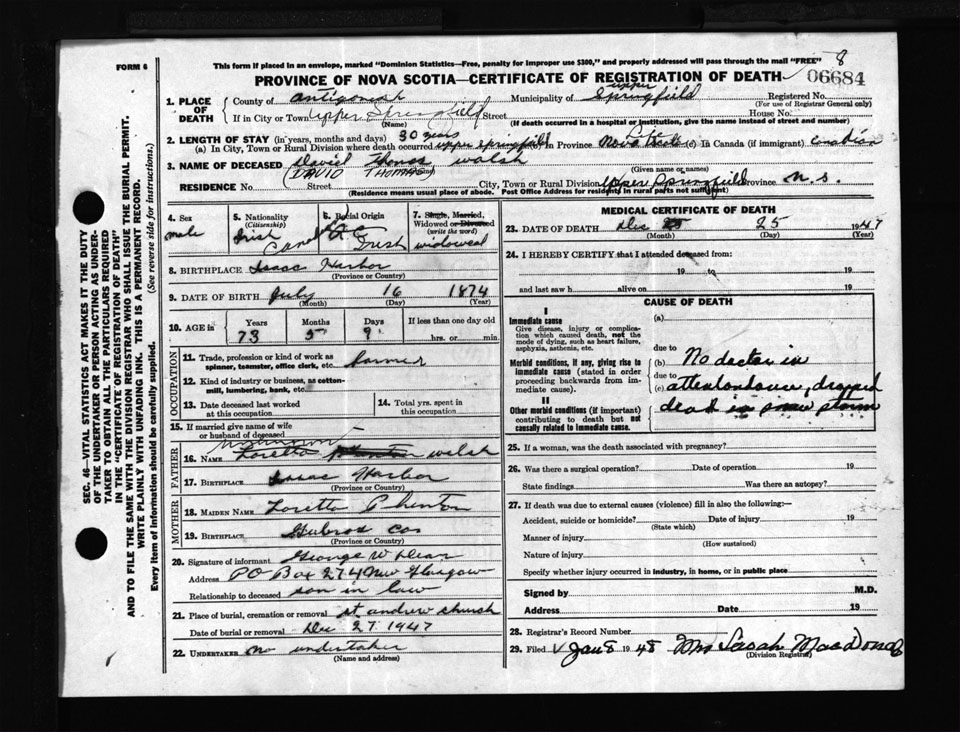 This form if placed in an envelope, marked "Dominion Statistics—Free, penalty for improper use $300," and properly addressed will pass through the mail "FREE"
FORM 6
8
PROVINCE OF NOVA SCOTIA—CERTIFICATE OF REGISTRATION OF DEATH
06684
1. PLACE OF DEATH
County of Antigonish
Municipality of upper Springfield
Registered No.
(For use of Registrar General only)
If in City or Town upper Springfield Street House No.
(Name)
(If death occurred in a hospital or institution, give the name instead of street and number)
2. LENGTH OF STAY (in years, months and days) 30 years
(a) In City, Town or Rural Division where death occurred upper springfield (b) In Province Nova Scotia (c) In Canada (if immigrant) Canadian
3. NAME OF DECEASED David Thomas Walsh
(DAVID THOMAS)
(Given name or names)
RESIDENCE No. Street City, Town or Rural Division Upper Springfield Province N. S.
(Residence means usual place of abode. Post Office Address for residents in rural parts not sufficient)
4. Sex
male
5. Nationality
(Citizenship)
Irish
6. Racial Origin
Irish
7. Single, Married, Widowed or Divorced
(write the word)
widowed
8. BIRTHPLACE Isaac Harbor
(Province or Country)
9. DATE OF BIRTH July 16 1874
(Month) (Day) (Year)
10. AGE in
Years Months Days If less than one day old
73 5 9 hrs. or min.
OCCUPATION
11. Trade, profession or kind of work as spinner, teamster, office clerk, etc.
12. Kind of industry or business, as cotton-mill, lumbering, bank, etc.
13. Date deceased last worked at this occupation
14. Total yrs. spent in this occupation
15. If married give name of wife or husband of deceased
unknown
FATHER
16. NAME Loretta Walsh
17. BIRTHPLACE Isaac Harbor
(Province or Country)
MOTHER
18. MAIDEN NAME Loretta
19. BIRTHPLACE
(Province or Country)
20. Signature of informant George W
Address PO Box 274 New Glasgow
Relationship to deceased son in law
21. Place of burial, cremation or removal st andrew church
Date of burial or removal Dec 27. 1947
22. UNDERTAKER no undertaker
(Name and address)
MEDICAL CERTIFICATE OF DEATH
23. DATE OF DEATH Dec 25 1947
(Month) (Day) (Year)
24. I HEREBY CERTIFY that I attended deceased from:
19 to 19
and last saw h alive on 19
CAUSE OF DEATH
I
Immediate cause
Give disease, injury or complication which caused death, not the mode of dying, such as heart failure, asphyxia, asthenia, etc.
(a)
due to
Morbid conditions, if any, giving rise to immediate cause (stated in order proceeding backwards from immediate cause).
(b) No doctor in
due to
(c) attendance, dropped
dead in snow storm
II
Other morbid conditions (if important) contributing to death but not causally related to immediate cause.
25. If a woman, was the death associated with pregnancy?
26. Was there a surgical operation? Date of operation 19
State findings Was there an autopsy?
27. If death was due to external causes (violence) fill in also the following:—
Accident, suicide or homicide? Date of injury 19
(State which)
Manner of injury
(How sustained)
Nature of injury
Specify whether injury occurred in industry, in home, or in public place
Signed by M.D.
Address Date 19
28. Registrar's Record Number
29. Filed Jan 8 1948 Mrs Sarah MacDonald
(Division Registrar)
SEC. 46—VITAL STATISTICS ACT MAKES IT THE DUTY
OF THE UNDERTAKER OR PERSON ACTING AS UNDER-
TAKER TO OBTAIN ALL THE PARTICULARS REQUIRED
IN THE "CERTIFICATE OF REGISTRATION OF DEATH"
AND TO FILE THE SAME WITH THE DIVISION REGISTRAR WHO SHALL ISSUE THE BURIAL PERMIT.
WRITE PLAINLY WITH UNFADING INK. THIS IS A PERMANENT RECORD.
Every item of information should be carefully supplied. (See reverse side for instructions.)